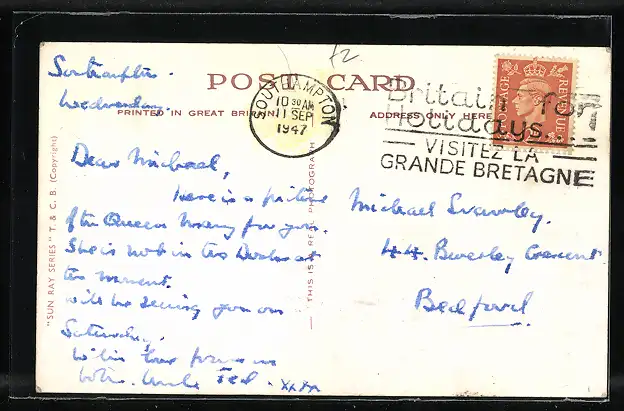 Southampton.
Wednesday.
POST CARD
PRINTED IN GREAT BRITAIN
ADDRESS ONLY HERE
SOUTHAMPTON
10 30 AM
11 SEP
1947
Britain for
Holidays.
VISITEZ LA
GRANDE BRETAGNE
POSTAGE
REVENUE
£2
"SUN RAY SERIES" T. & C. B. (Copyright)
THIS IS A REAL PHOTOGRAPH
Dear Michael,
Here is a picture
of the Queen Mary for you.
She is not in the Docks at
the moment.
Will be seeing you on
Saturday.
With love from us
both. Uncle Ted. xxxx
Michael
44. Beverley Crescent
Bedford.